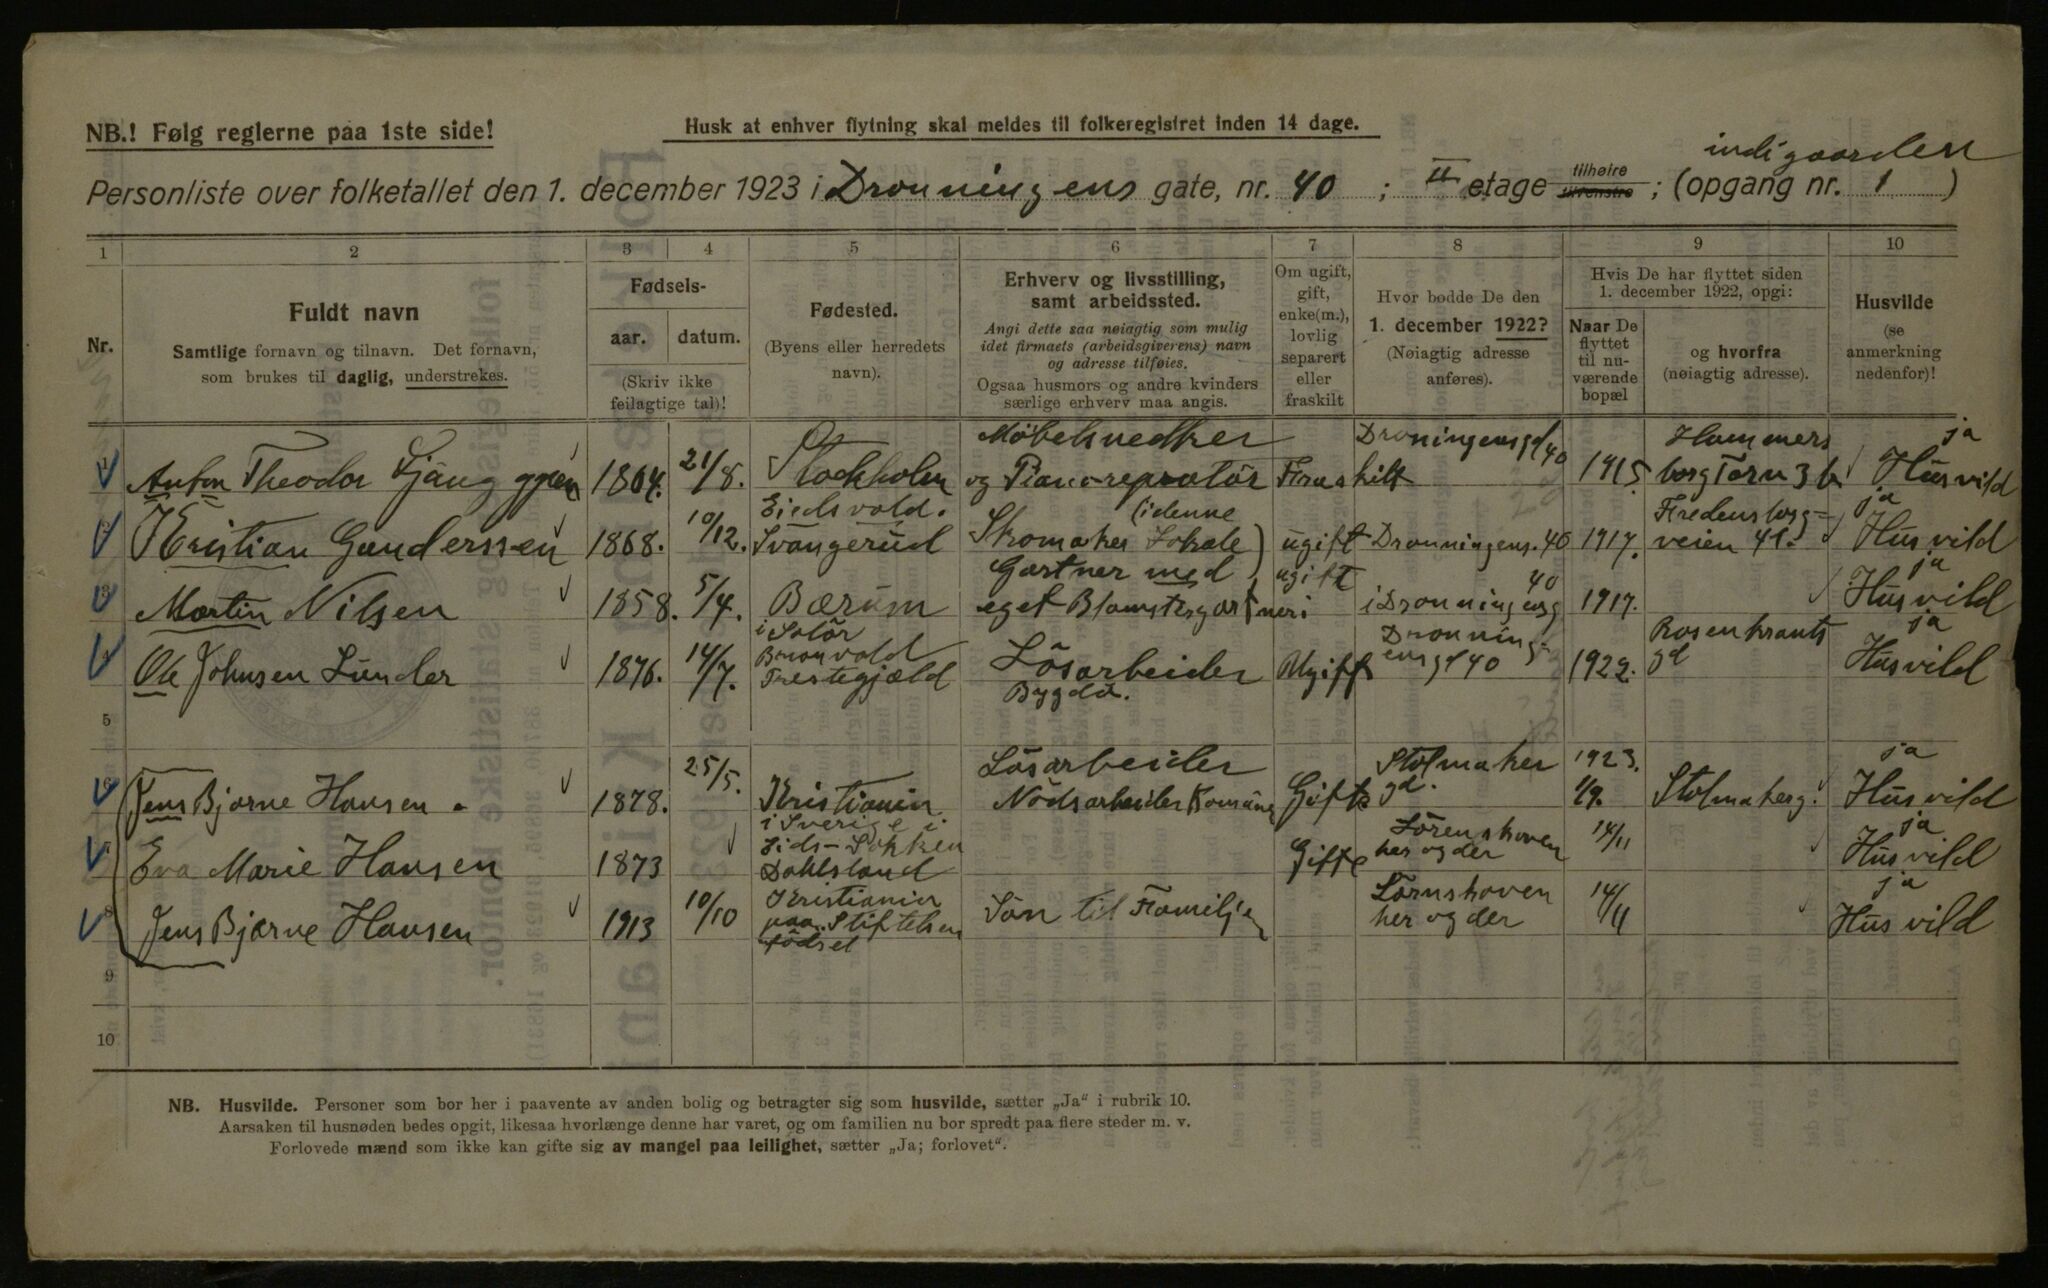 NB.! Følg reglerne paa 1ste side!
Husk at enhver flytning skal meldes til folkeregistret inden 14 dage.
indi gaarden
Personliste over folketallet den 1. december 1923 i Dronningens gate, nr. 40 ; II etage tilhøire tilvenstre ; (opgang nr. 1 )
1 2 3 4 5 6 7 8 9 10
Nr.
Fuldt navn
Samtlige fornavn og tilnavn. Det fornavn,
som brukes til daglig, understrekes.
Fødsels-
aar. datum.
(Skriv ikke
feilagtige tal)!
Fødested.
(Byens eller herredets
navn).
Erhverv og livsstilling,
samt arbeidssted.
Angi dette saa nøiagtig som mulig
idet firmaets (arbeidsgiverens) navn
og adresse tilføies.
Ogsaa husmors og andre kvinders
særlige erhverv maa angis.
Om ugift,
gift,
enke(m.),
lovlig
separert
eller
fraskilt
Hvor bodde De den
1. december 1922?
(Nøiagtig adresse
anføres).
Hvis De har flyttet siden
1. december 1922, opgi:
Naar De
flyttet
til nu-
værende
bopæl
og hvorfra
(nøiagtig adresse).
Husvilde
(se
anmerkning
nedenfor)!
Møbelsnedker Dronningensgd 40 Hammers ja
Anton Theodor 1864. 21/8. Stockholm og Pianoreparatör Fraskilt 1915. borg Torv 3 b Husvild
Eidsvold. (i denne Fredensborg= ja
Kristian Gunderssen 1868. 10/12. Svangerud Skomaker Lokale) ugift Dronningens. 40 1917. veien 41. Husvild
Gartner med ugift 40 ja
Martin Nilsen 1858. 5/4. Bærum eget Blomstergartneri i Dronningensg 1917. Husvild
i Solör Dronning= Rosenkrants ja
Ole Johnsen Lunder 1876. 14/7. Prestegjæld Lösarbeider Ugift ensgd 40 1922. gd Husvild
Bygdö.
5
Lösarbeider Stolmaker 1923. ja
Jens Bjarne Hansen. 1878. 25/5. Kristiania Nödsarbeider Komune Gift gd. 1/9. Stolmakerg. Husvild
i Sverige i. Lörenskoven ja
Eva Marie Hansen 1873 Dahlsland Gifte her og der 14/11 Husvild
Kristiania Lörnskoven ja
Jens Bjarne Hansen 1913 10/10 paa Stiftelsen Sön til Familjen her og der 14/11 Husvild
födsel
9
10
NB. Husvilde. Personer som bor her i paavente av anden bolig og betragter sig som husvilde, sætter „Ja“ i rubrik 10.
Aarsaken til husnøden bedes opgit, likesaa hvorlænge denne har varet, og om familien nu bor spredt paa flere steder m. v.
Forlovede mænd som ikke kan gifte sig av mangel paa leilighet, sætter „Ja; forlovet“.